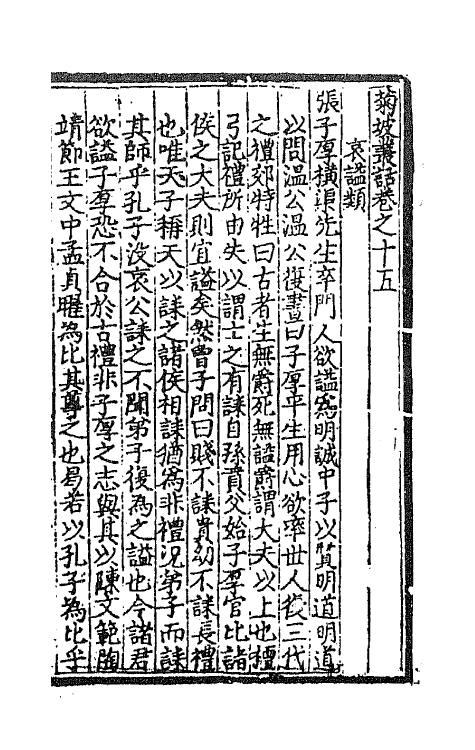 菊坡叢話卷之十五
哀謚類
張子厚橫渠先生卒門人欲謚爲明誠中子以質明道明道
以問温公温公復書曰子厚平生用心欲率世人復三代
之禮郊特牲曰古者生無爵死無謚爵謂大夫以上也檀
弓記禮所由失以謂士之有誄自孫賁父始子厚官比諸
侯之大夫則宜謚矣然曾子問曰賤不誄貴幼不誄長禮
也唯天子稱天以誄之諸侯相誄猶爲非禮况弟子而誄
其師乎孔子没哀公誄之不聞弟子復為之謚也今諸君
欲謚子厚恐不合於古禮非子厚之志與其以陳文範陶
靖節王文中孟貞曜為比其尊之也曷若以孔子為比乎